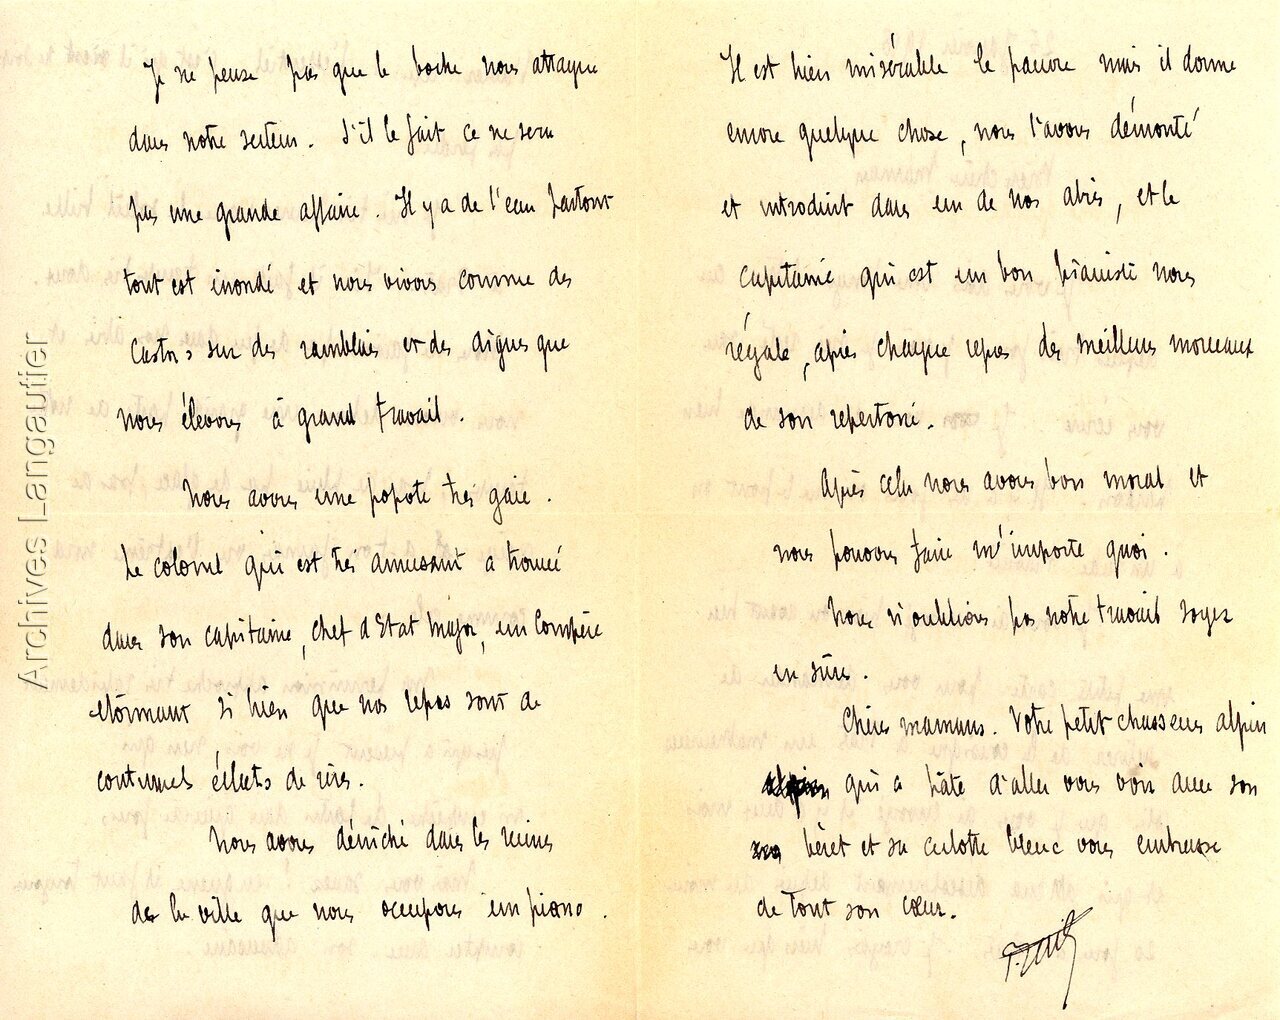 Je ne pense pas que le boche nous attaque
dans notre secteur. S'il le fait ce ne sera
pas une grande affaire. Il y a de l'eau partout
tout est inondé et nous vivons comme des
Castors sur des remblais et des digues que
nous élevons à grand travail.
Nous avons une popote très gaie.
Le colonel qui est très amusant a trouvé
dans son capitaine, chef d'Etat Major, un Compère
étonnant si bien que nos repas sont de
continuels éclats de rires.
Nous avons déniché dans les ruines
de la ville que nous occupons un piano.
Il est bien misérable le pauvre mais il donne
encore quelque chose, nous l'avons démonté
et introduit dans un de nos abris, et le
capitaine qui est un bon pianiste nous
régale, après chaque repas des meilleurs morceaux
de son repertoire.
Après cela nous avons bon moral et
nous pouvons faire n'importe quoi.
Nous n'oublions pas notre travail soyez
en sûre.
Chère maman. Votre petit chasseur alpin
qui a hâte d'aller vous voir avec son
béret et sa culotte bleue vous embrasse
de tout son cœur.
Archives Langautier